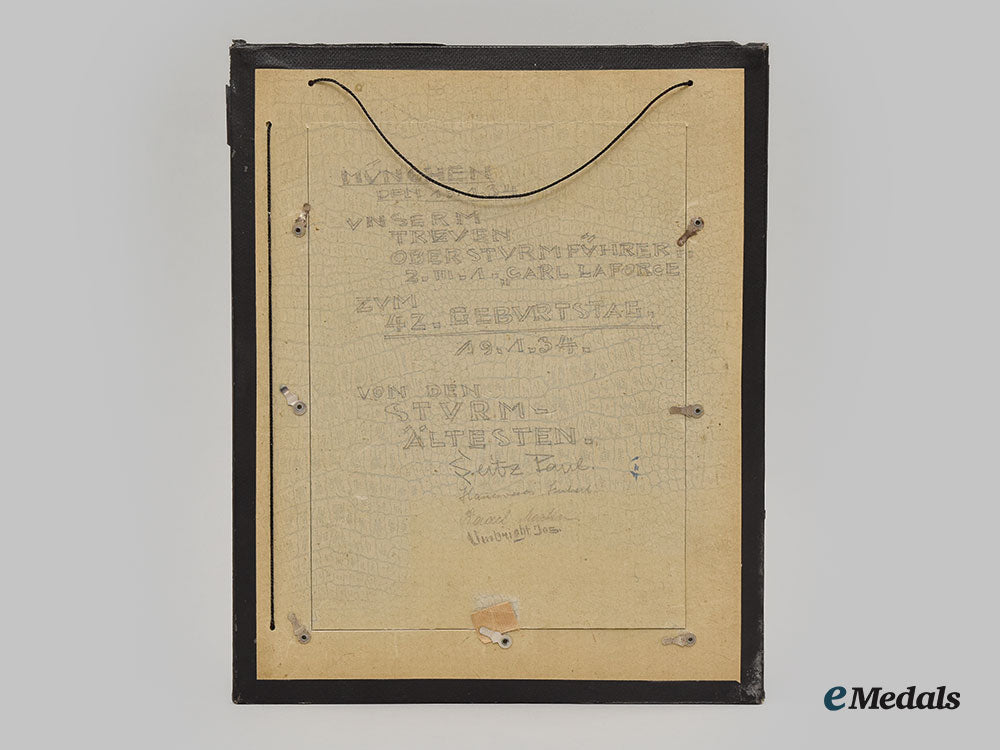 MÜNCHEN
DEN 19.1.34
VNSERM
TREVEN
OBERSTVRMFÜHRER
2. III. 1. "CARL LAFORCE
ZVM
42. GEBVRTSTAG.
19.1.34.
VON DEN
STVRM-
ÄLTESTEN.
Seitz Paul.
Umbricht Jos.
eMedals